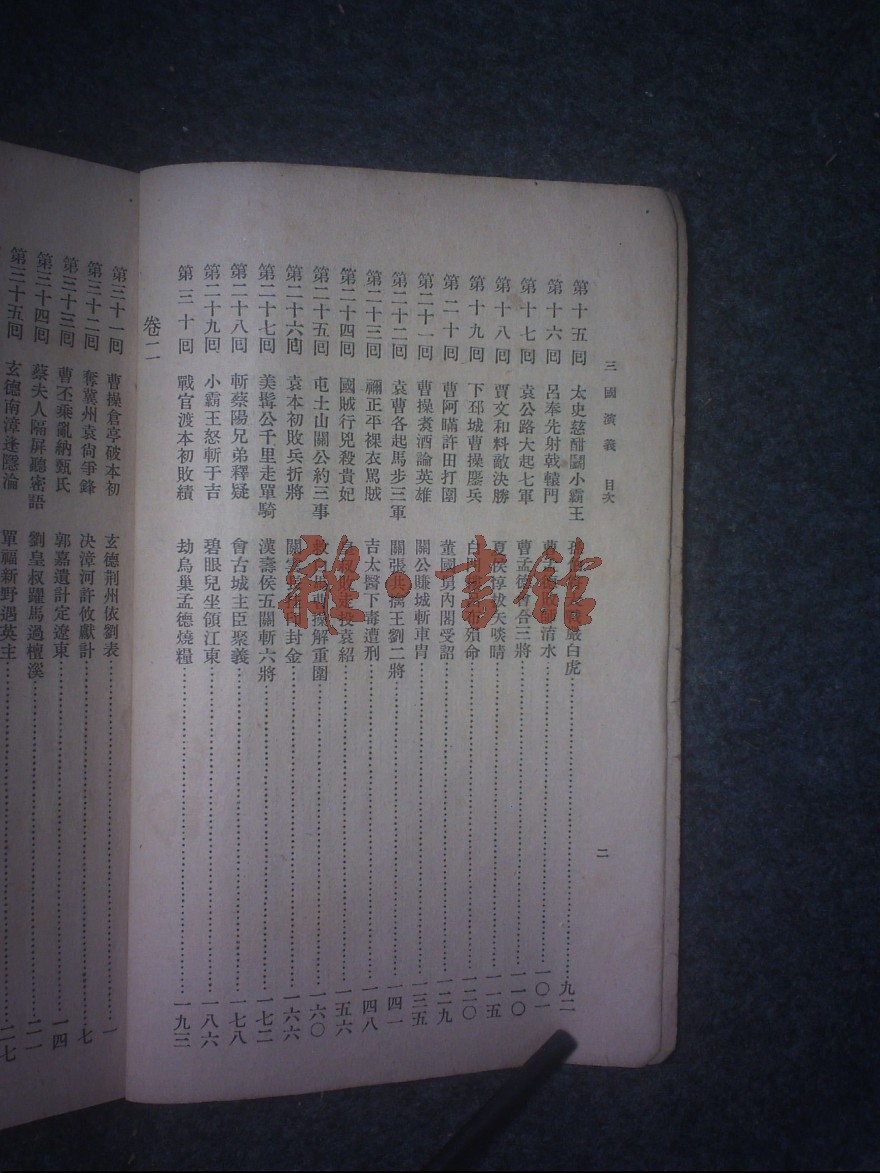 三國演義 目次
二
第十五回 太史慈酣鬬小霸王 嚴白虎 九二
第十六回 呂奉先射戟轅門 清水 一〇一
第十七回 袁公路大起七軍 曹孟德會合三將 一一〇
第十八回 賈文和料敵決勝 夏侯惇拔矢啖睛 一一五
第十九回 下邳城曹操鏖兵 白 殞命 一二〇
第二十回 曹阿瞞許田打圍 董國舅內閣受詔 一二九
第二十一回 曹操煑酒論英雄 關公賺城斬車胄 一三五
第二十二回 袁曹各起馬步三軍 關張共擒王劉二將 一四一
第二十三回 禰正平裸衣罵賊 吉太醫下毒遭刑 一四八
第二十四回 國賊行兇殺貴妃 皇叔敗走投袁紹 一五六
第二十五回 屯土山關公約三事 救 曹操解重圍 一六〇
第二十六回 袁本初敗兵折將 關雲長 封金 一六六
第二十七回 美髯公千里走單騎 漢壽侯五關斬六將 一七二
第二十八回 斬蔡陽兄弟釋疑 會古城主臣聚義 一七八
第二十九回 小霸王怒斬于吉 碧眼兒坐領江東 一八六
第三十回 戰官渡本初敗績 劫烏巢孟德燒糧 一九三
卷二
第三十一回 曹操倉亭破本初 玄德荆州依劉表 一
第三十二回 奪冀州袁尙爭鋒 决漳河許攸獻計 七
第三十三回 曹丕乘亂納甄氏 郭嘉遺計定遼東 一四
第三十四回 蔡夫人隔屏聽密語 劉皇叔躍馬過檀溪 二一
第三十五回 玄德南漳逢隱淪 單福新野遇英主 二七
雜·書館